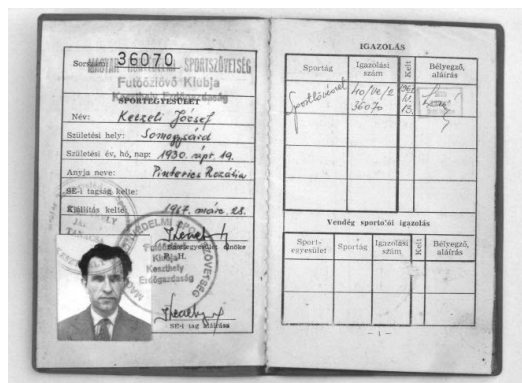 Sorszám: 36070
MAGYAR HONVÉDELMI SPORTSZÖVETSÉG
Futóözlövő Klubja
Keszthely Erdőgazdaság
SPORTEGYESÜLET
Név: Keszeli József
Születési hely: Somogysárd
Születési év, hó, nap: 1930. ápr. 19.
Anyja neve: Pinterics Rozália
SE-i tagság kelte:
Kiállítás kelte: 1967. márc. 28.
P. H.
Futóözlövő
Klubja
Keszthely
Erdőgazdaság
SE-i tag aláírása
IGAZOLÁS
Sportág Igazolási szám Kelt Bélyegző, aláírás
Sportlövészet 40/VI/2
36070
Vendég sportolói igazolás
Sport-egyesület Sportág Igazolási szám Kelt Bélyegző, aláírás
— 1 —